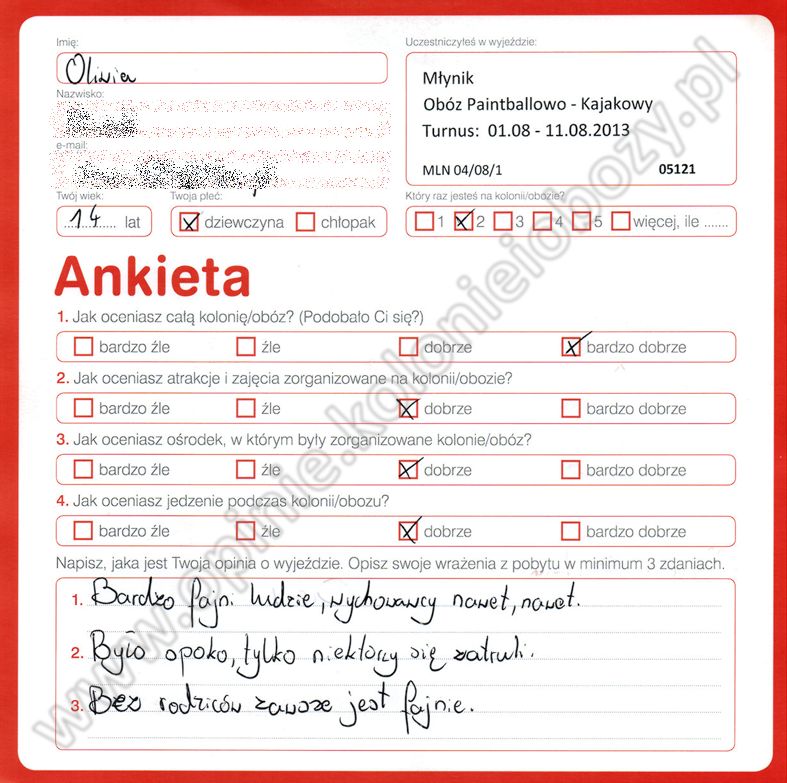 Imię:
Oliwia
Nazwisko:
e-mail:
Twój wiek:
14 lat
Twoja płeć:
dziewczyna chłopak
Uczestniczyłeś w wyjeździe:
Młynik
Obóz Paintballowo - Kajakowy
Turnus: 01.08 - 11.08.2013
MLN 04/08/1 05121
Który raz jesteś na kolonii/obozie?
1 2 3 4 5 więcej, ile .......
Ankieta
1. Jak oceniasz całą kolonię/obóz? (Podobało Ci się?)
bardzo źle źle dobrze bardzo dobrze
2. Jak oceniasz atrakcje i zajęcia zorganizowane na kolonii/obozie?
bardzo źle źle dobrze bardzo dobrze
3. Jak oceniasz ośrodek, w którym były zorganizowane kolonie/obóz?
bardzo źle źle dobrze bardzo dobrze
4. Jak oceniasz jedzenie podczas kolonii/obozu?
bardzo źle źle dobrze bardzo dobrze
Napisz, jaka jest Twoja opinia o wyjeździe. Opisz swoje wrażenia z pobytu w minimum 3 zdaniach.
1. Bardzo fajni ludzie, wychowawcy nawet, nawet.
2. Było opoko, tylko niektórzy się zatruli.
3. Bez rodziców zawsze jest fajnie.
www.opinie.kolonieiobozy.pl